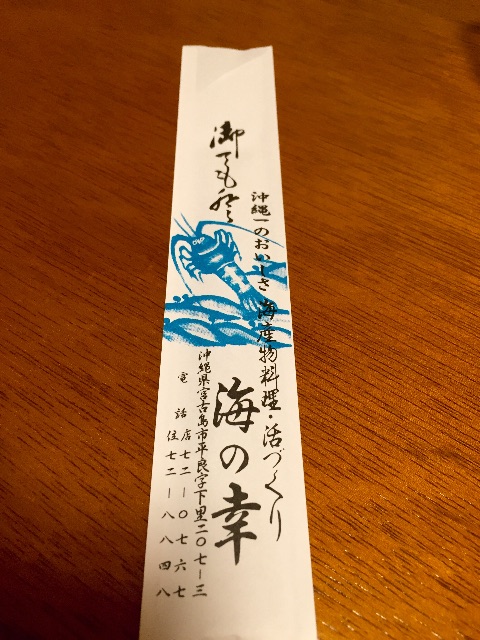 沖縄一のおいしさ 海産物料理・活づくり
御てもと
海の幸
沖縄県宮古島市平良字下里二〇七ー三
電話 店七二ー〇七六七
住七二ー八八四八